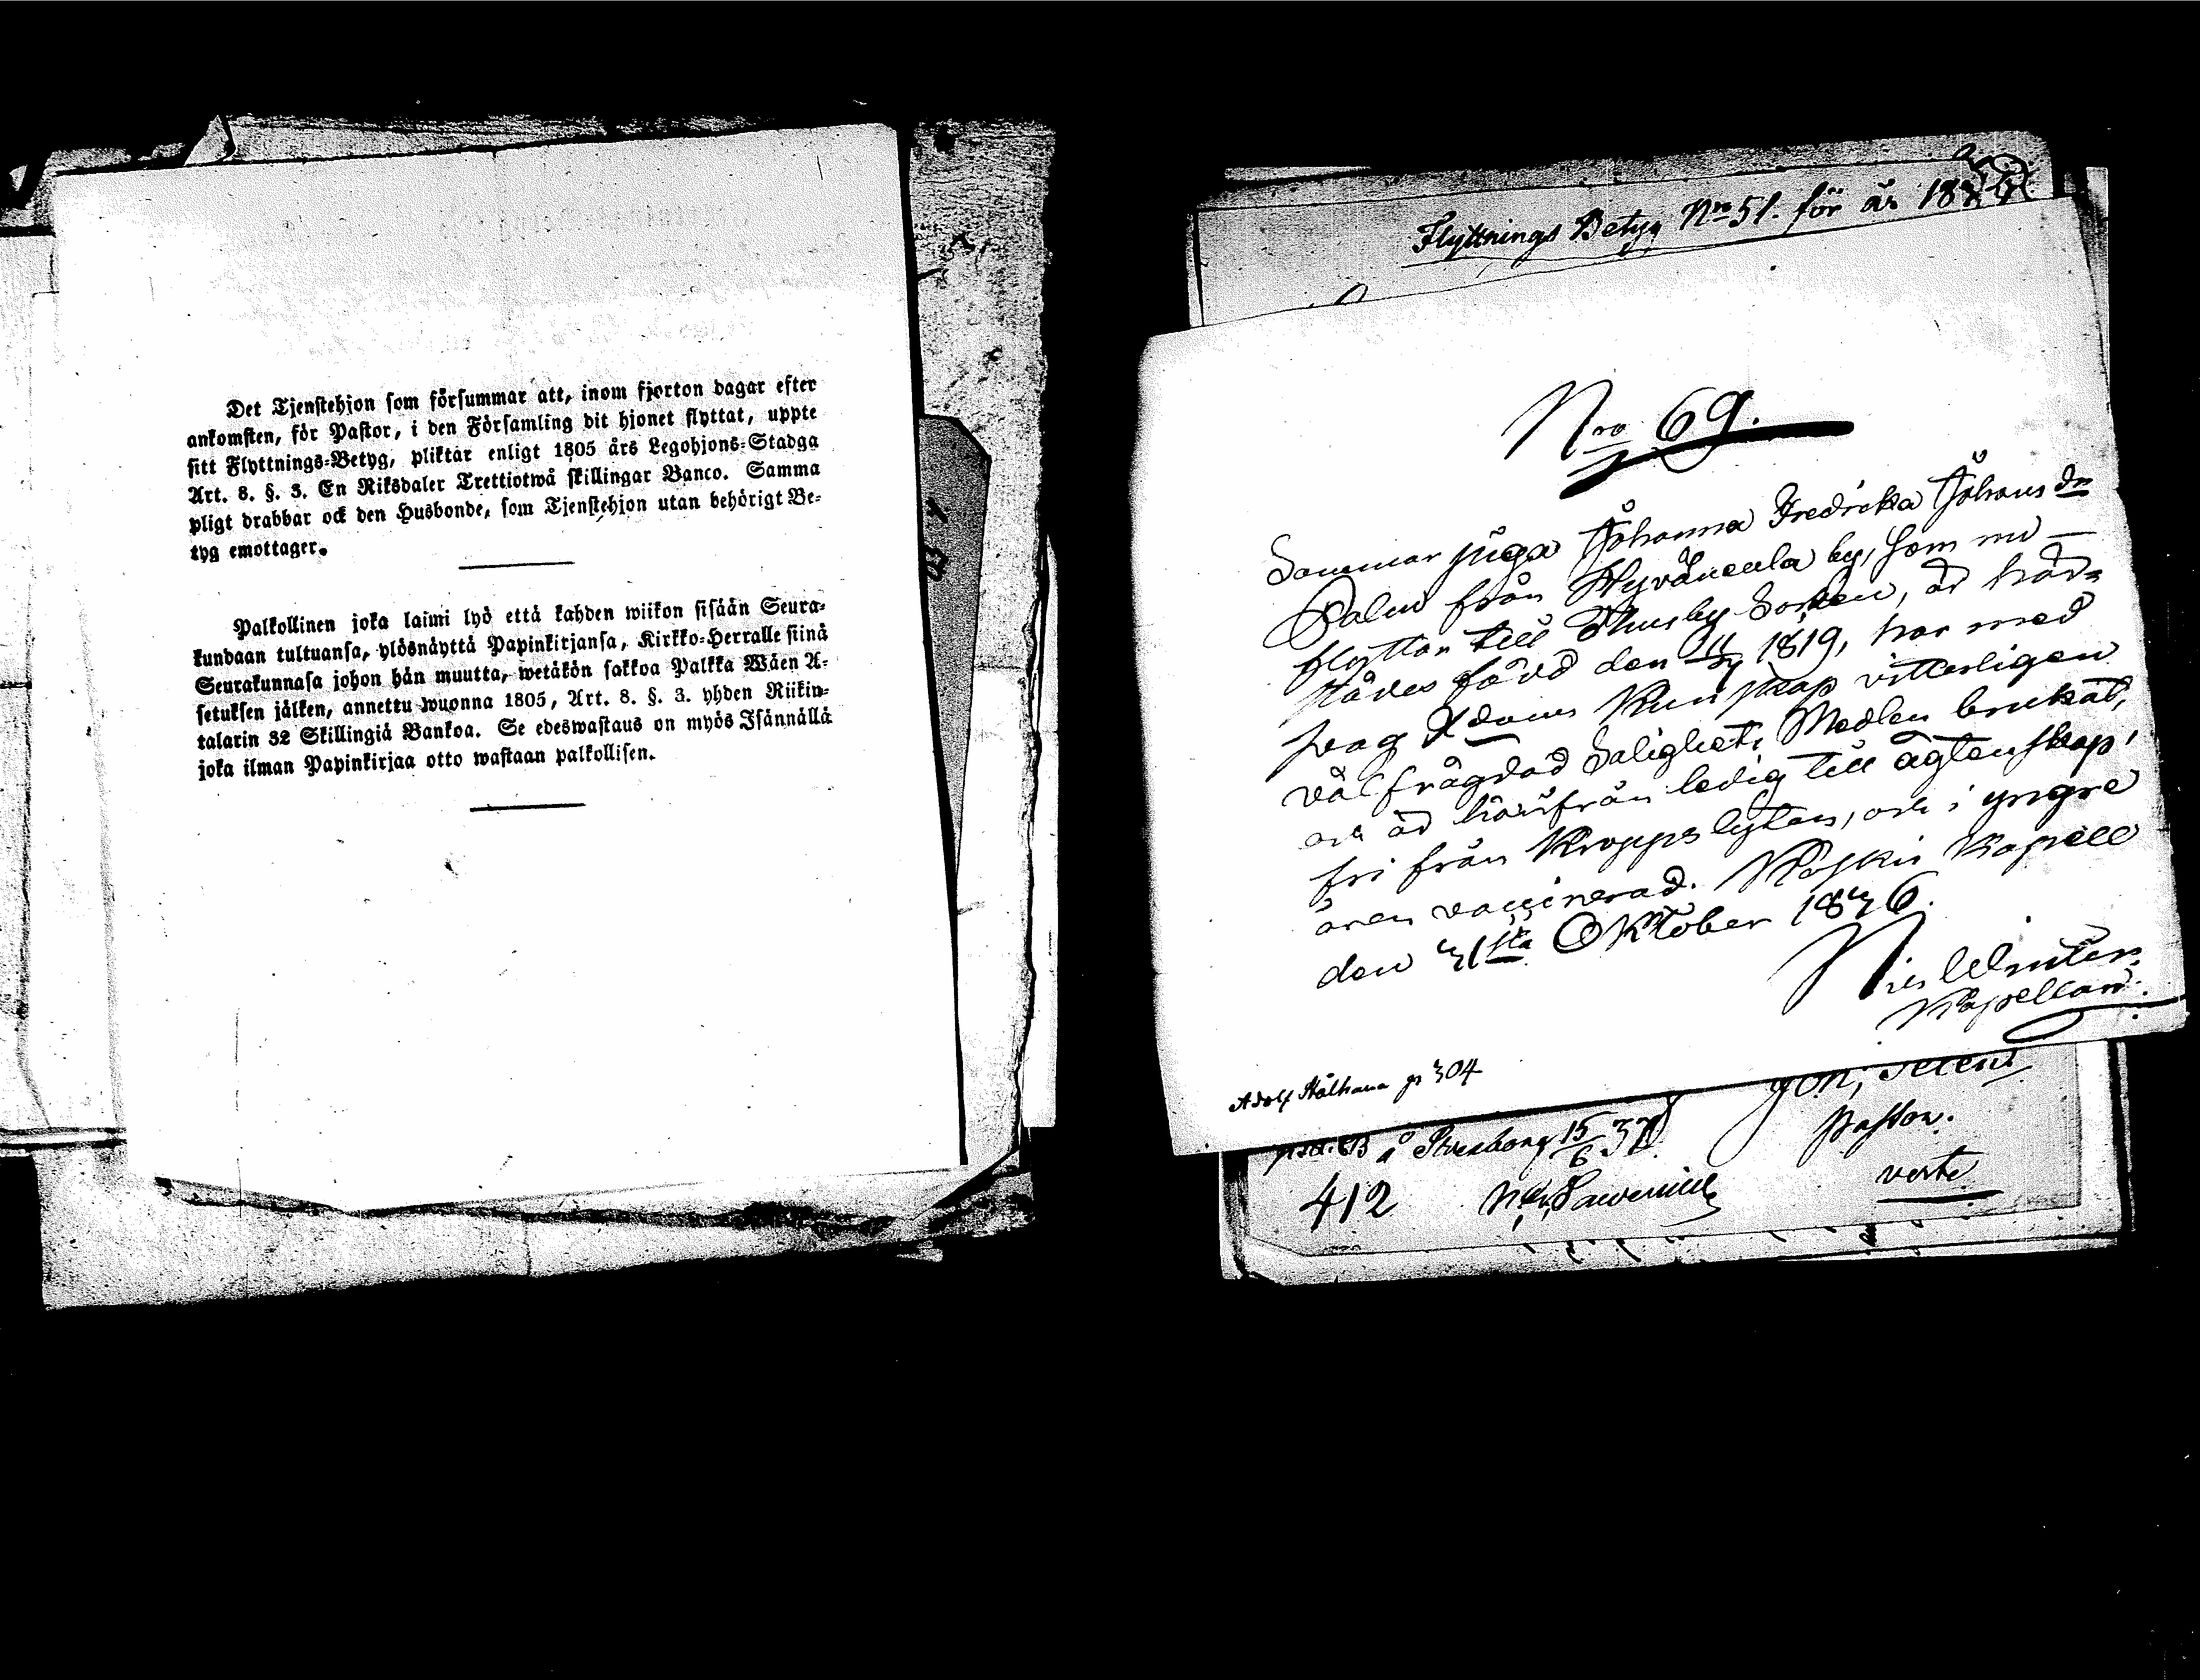 Det Tjenstehjon som försummar att, inom fjorton dagar efter
ankomsten, för Pastor, i den Församling dit hjonet flyttat, uppte
sitt Flyttnings-Betyg, pliktar enligt 1805 års Legohjons-Stadga
Art. 8. §. 3. En Riksdaler Trettiotwå skillingar Banco. Samma
pligt drabbar ock den Husbonde, som Tjenstehjon utan behörigt Be-
tyg emottager.
Palkollinen joka laimi lyö että kahden wiikon sisään Seura-
kundaan tultuansa, ylösnäyttä Papinkirjansa, Kirkko-Herralle siinä
Seurakunnasa johon hän muutta, wetäkön sakkoa Palkka Wäen A-
setuksen jälken, annettu wuonna 1805, Art. 8. §. 3. yhden Riikin-
talarin 32 Skillingiä Bankoa. Se edeswastaus on myös Isännällä
joka ilman Papinkirjaa otto wastaan palkollisen.
Flyttnings Betyg Nro 51. för år
Nro 69.
piga Johanna Fredrika Johans dr
Palm från by, som nu
flyttar till Thusby Socken, är här-
städes född den 1819, har med
svag Xdoms Kunskap vitterligen
väl frägdad Salighets Medlen brukat,
och är härifrån ledig till ägtenskap,
fri från Kroppslyten, och i yngre
åren vaccinerad. Koskis Kapell
den 31sta Oktober 1836.
Nils Winter
Kapellan.
Adolf p 304
Pastor.
412
verte